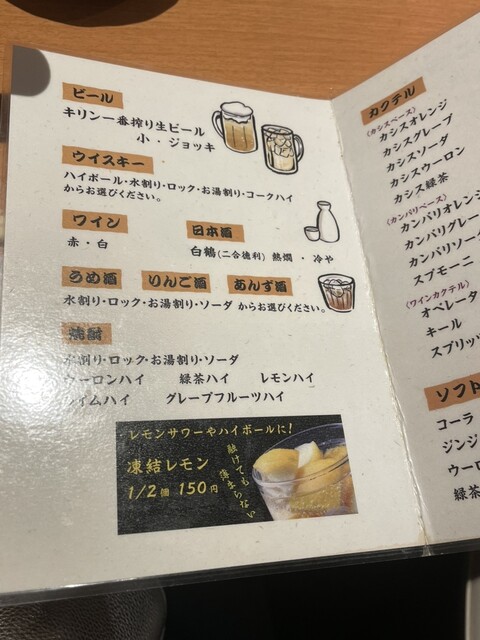 ビール
キリン一番搾り生ビール
小・ジョッキ
ウイスキー
ハイボール・水割り・ロック・お湯割り・コークハイ
からお選びください。
ワイン
赤・白
日本酒
白鶴(二合徳利) 熱燗・冷や
うめ酒 りんご酒 あんず酒
水割り・ロック・お湯割り・ソーダ からお選びください。
焼酎
水割り・ロック・お湯割り・ソーダ
ウーロンハイ 緑茶ハイ レモンハイ
ライムハイ グレープフルーツハイ
レモンサワーやハイボールに!
凍結レモン
1/2個 150円
融けても
薄まらない
カクテル
(カシスベース)
カシスオレンジ
カシスグレープ
カシスソーダ
カシスウーロン
カシス緑茶
(カンパリベース)
カンパリオレンジ
カンパリグレー
カンパリソーダ
スプモーニ
(ワインカクテル)
オペレータ
キール
スプリッツ
ソフト
コーラ
ジンジ
ウーロ
緑茶